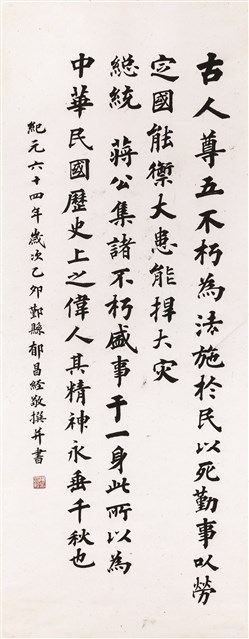 古人尊五不朽為法施於民以死勤事以勞
定國能禦大患能捍大灾
總統 蔣公集諸不朽盛事于一身此所以為
中華民國歷史上之偉人其精神永垂千秋也
紀元六十四年歲次乙卯鄞縣郁昌經敬撰并書